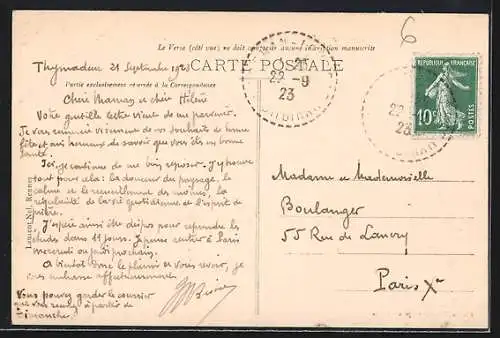 Le Verso (côté vue) ne doit comporter aucune inscription manuscrite
CARTE POSTALE
Partie exclusivement réservée à la Correspondance
6
22 -9
23
MORBIHAN
22
23
REPUBLIQUE FRANÇAISE
10c
POSTES
Laurent-Nel, Rennes
Thymadeuc 21 Septembre 1923
Chère Maman et chère Hélène
Votre gentille lettre vient de me parvenir.
Je vous remercie vivement de vos souhaits de bonne
fête et suis heureux de savoir que vous êtes en bonne
santé.
Ici, je continue de me bien reposer. J'y trouve
tout pour cela : la douceur du paysage, le
calme et le recueillement des moines, la
régularité de la vie quotidienne et l'esprit de
prière.
J'espère ainsi être dispos pour reprendre les
études dans 11 jours. Je pense rentrer à Paris
mercredi ou jeudi prochain.
A bientôt donc le plaisir de vous revoir, je
vous embrasse affectueusement
Vous pouvez garder le courrier
que vous recevrez à partir de
dimanche.
Madame et Mademoiselle
Boulanger
55 Rue de Lancry
Paris Xe